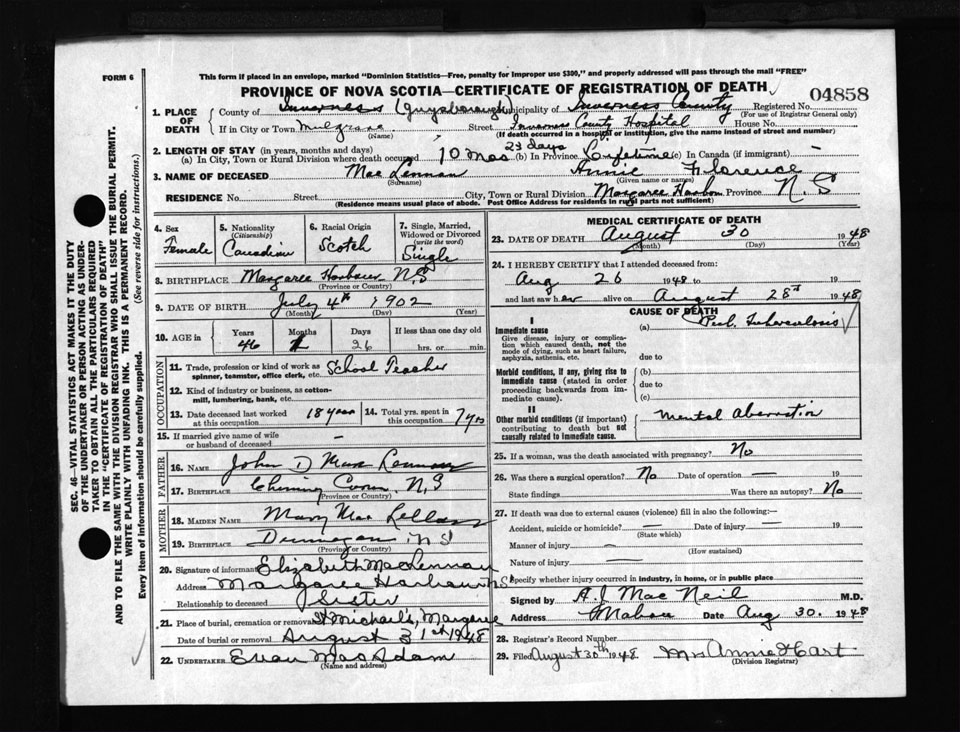 FORM 6
This form if placed in an envelope, marked "Dominion Statistics—Free, penalty for improper use $300," and properly addressed will pass through the mail "FREE"
PROVINCE OF NOVA SCOTIA—CERTIFICATE OF REGISTRATION OF DEATH
04858
1. PLACE OF DEATH
County of Inverness (Guysborough Municipality of Inverness County Registered No.
(For use of Registrar General only)
If in City or Town Mulgrave Street Inverness County Hospital House No.
(Name) (If death occurred in a hospital or institution, give the name instead of street and number)
2. LENGTH OF STAY (in years, months and days) 23 days
(a) In City, Town or Rural Division where death occurred 10 mos (b) In Province Lifetime (c) In Canada (if immigrant) —
3. NAME OF DECEASED Mac Lennan Annie Florence
(Surname) (Given name or names)
RESIDENCE No. Street City, Town or Rural Division Margaree Harbor Province N. S
(Residence means usual place of abode. Post Office Address for residents in rural parts not sufficient)
4. Sex Female
5. Nationality (Citizenship) Canadian
6. Racial Origin Scotch
7. Single, Married, Widowed or Divorced (write the word) Single
8. BIRTHPLACE Margaree Harbour N,S
(Province or Country)
9. DATE OF BIRTH July 4th 1902
(Month) (Day) (Year)
10. AGE in Years Months Days If less than one day old
46 1 26 hrs. or min.
OCCUPATION
11. Trade, profession or kind of work as spinner, teamster, office clerk, etc. School Teacher
12. Kind of industry or business, as cotton-mill, lumbering, bank, etc.
13. Date deceased last worked at this occupation 18 years
14. Total yrs. spent in this occupation 7 yrs
15. If married give name of wife or husband of deceased —
FATHER
16. NAME John D Mac Lennan
17. BIRTHPLACE N,S
(Province or Country)
MOTHER
18. MAIDEN NAME Mary Mac Lellan
19. BIRTHPLACE Dunvegan N S
(Province or Country)
20. Signature of informant Elizabeth MacLennan
Address Margaree Harbour N S
Relationship to deceased Sister
21. Place of burial, cremation or removal St Michael's, Margaree
Date of burial or removal August 31st 1948
22. UNDERTAKER Evan MacAdam
(Name and address)
MEDICAL CERTIFICATE OF DEATH
23. DATE OF DEATH August 30 1948
(Month) (Day) (Year)
24. I HEREBY CERTIFY that I attended deceased from:
Aug 26 1948 to 19
and last saw her alive on August 28th 1948
CAUSE OF DEATH
I
Immediate cause
Give disease, injury or complication which caused death, not the mode of dying, such as heart failure, asphyxia, asthenia, etc.
(a) Pul. Tuberculosis
due to
Morbid conditions, if any, giving rise to immediate cause (stated in order proceeding backwards from immediate cause).
(b)
due to
(c)
II
Other morbid conditions (if important) contributing to death but not causally related to immediate cause.
Mental Aberration
25. If a woman, was the death associated with pregnancy? No
26. Was there a surgical operation? No Date of operation — 19
State findings Was there an autopsy? No
27. If death was due to external causes (violence) fill in also the following:
Accident, suicide or homicide? — Date of injury — 19
(State which)
Manner of injury —
(How sustained)
Nature of injury —
Specify whether injury occurred in industry, in home, or in public place
Signed by A. J Mac Neil M.D.
Address Mabou Date Aug 30. 1948
28. Registrar's Record Number
29. Filed August 30th 1948 Mrs Annie Hart
(Division Registrar)
SEC. 46—VITAL STATISTICS ACT MAKES IT THE DUTY
OF THE UNDERTAKER OR PERSON ACTING AS UNDERTAKER TO OBTAIN ALL THE PARTICULARS REQUIRED
IN THE "CERTIFICATE OF REGISTRATION OF DEATH"
AND TO FILE THE SAME WITH THE DIVISION REGISTRAR WHO SHALL ISSUE THE BURIAL PERMIT.
WRITE PLAINLY WITH UNFADING INK. THIS IS A PERMANENT RECORD.
Every item of information should be carefully supplied. (See reverse side for instructions.)